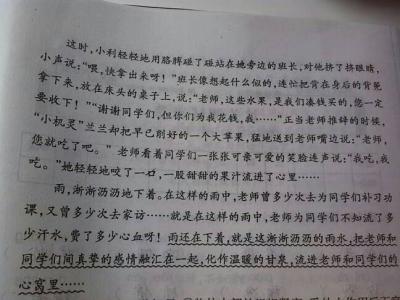 这时,小利轻轻地用胳膊碰了碰站在她旁边的班长,对他挤了挤眼睛,
小声说:“喂,快拿出来呀!”班长像想起什么似的,连忙把背在身后的背篼
拿下来,放在床头的桌子上,说:“老师,这些水果,是我们凑钱买的,您一定
要收下!”“谢谢同学们,但你们为我花钱,我……”正当老师推辞的时候,
“小机灵”兰兰却把早已削好的一个大苹果,猛地送到老师嘴边说:“老师,
您就吃了吧。”老师看着同学们一张张可亲可爱的笑脸连声说:“我吃,我
吃。”她轻轻地咬了一口,一股甜甜的果汁流进了心里……
雨,淅淅沥沥地下着。在这样的雨中,老师曾多少次去为同学们补习功
课,又曾多少次去家访……就是在这样的雨中,老师为同学们不知流了多
少汗水,费了多少心血呀!雨还在下着,就是这淅淅沥沥的雨水,把老师和
同学们间真挚的感情融汇在一起,化作温暖的甘泉,流进老师和同学们的
心窝里……